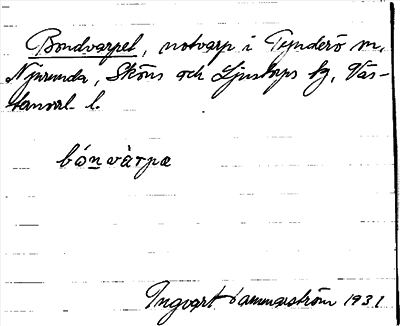 Bondvarpet, notvarp i Tynderö m,
Njurunda, Sköns och Ljustorps tg, Väs-
ternorrl. l.
bónvàrpæ
Ingvart Hammarström 1931